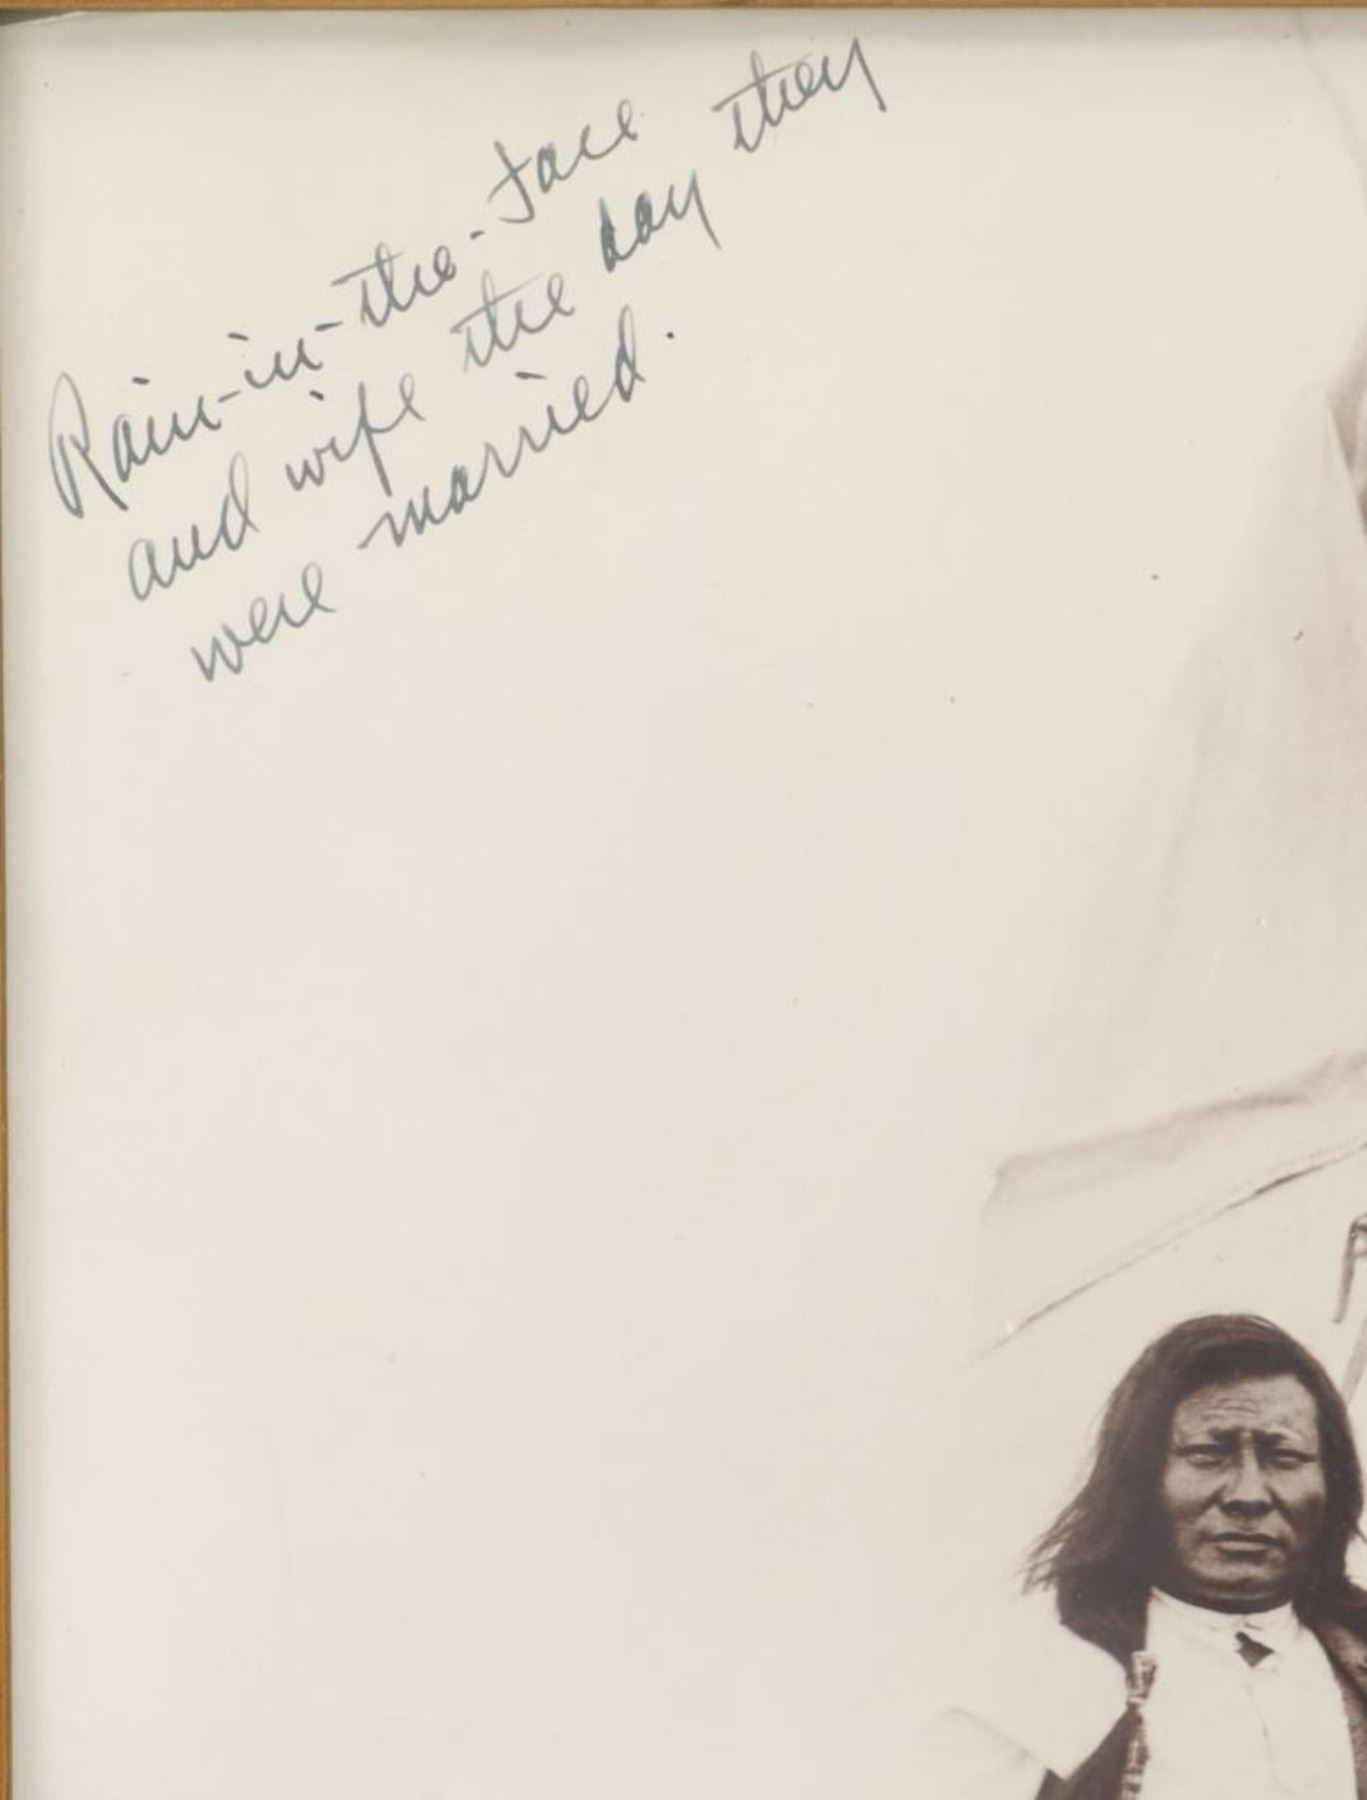 Rain-in-the-Face
and wife the day they
were married.